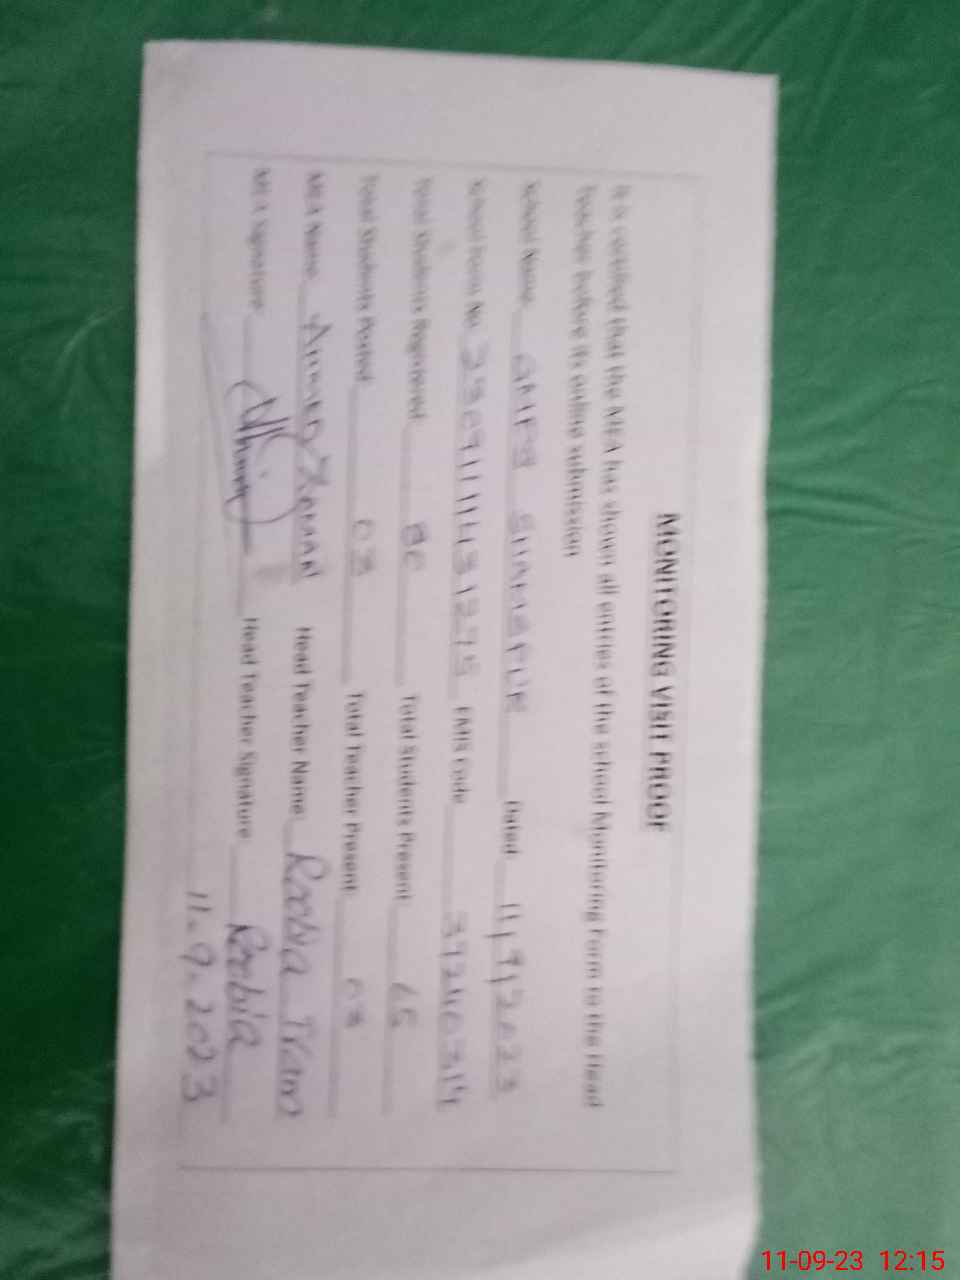 MONITORING VISIT PROOF
It is certified that the MEA has shown all entries of the school Monitoring Form to the Head
Teacher before its online submission
School Name Dated 11,9,2023
School Form No. EMIS Code 37240314
Total Students Registered Total Students Present
Total Students Posted 03 Total Teacher Present 03
MEA Name Ahmed Zaman Head Teacher Name Roobia Iram
MEA Signature Head Teacher Signature Roobia
11.9.2023
11-09-23 12:15